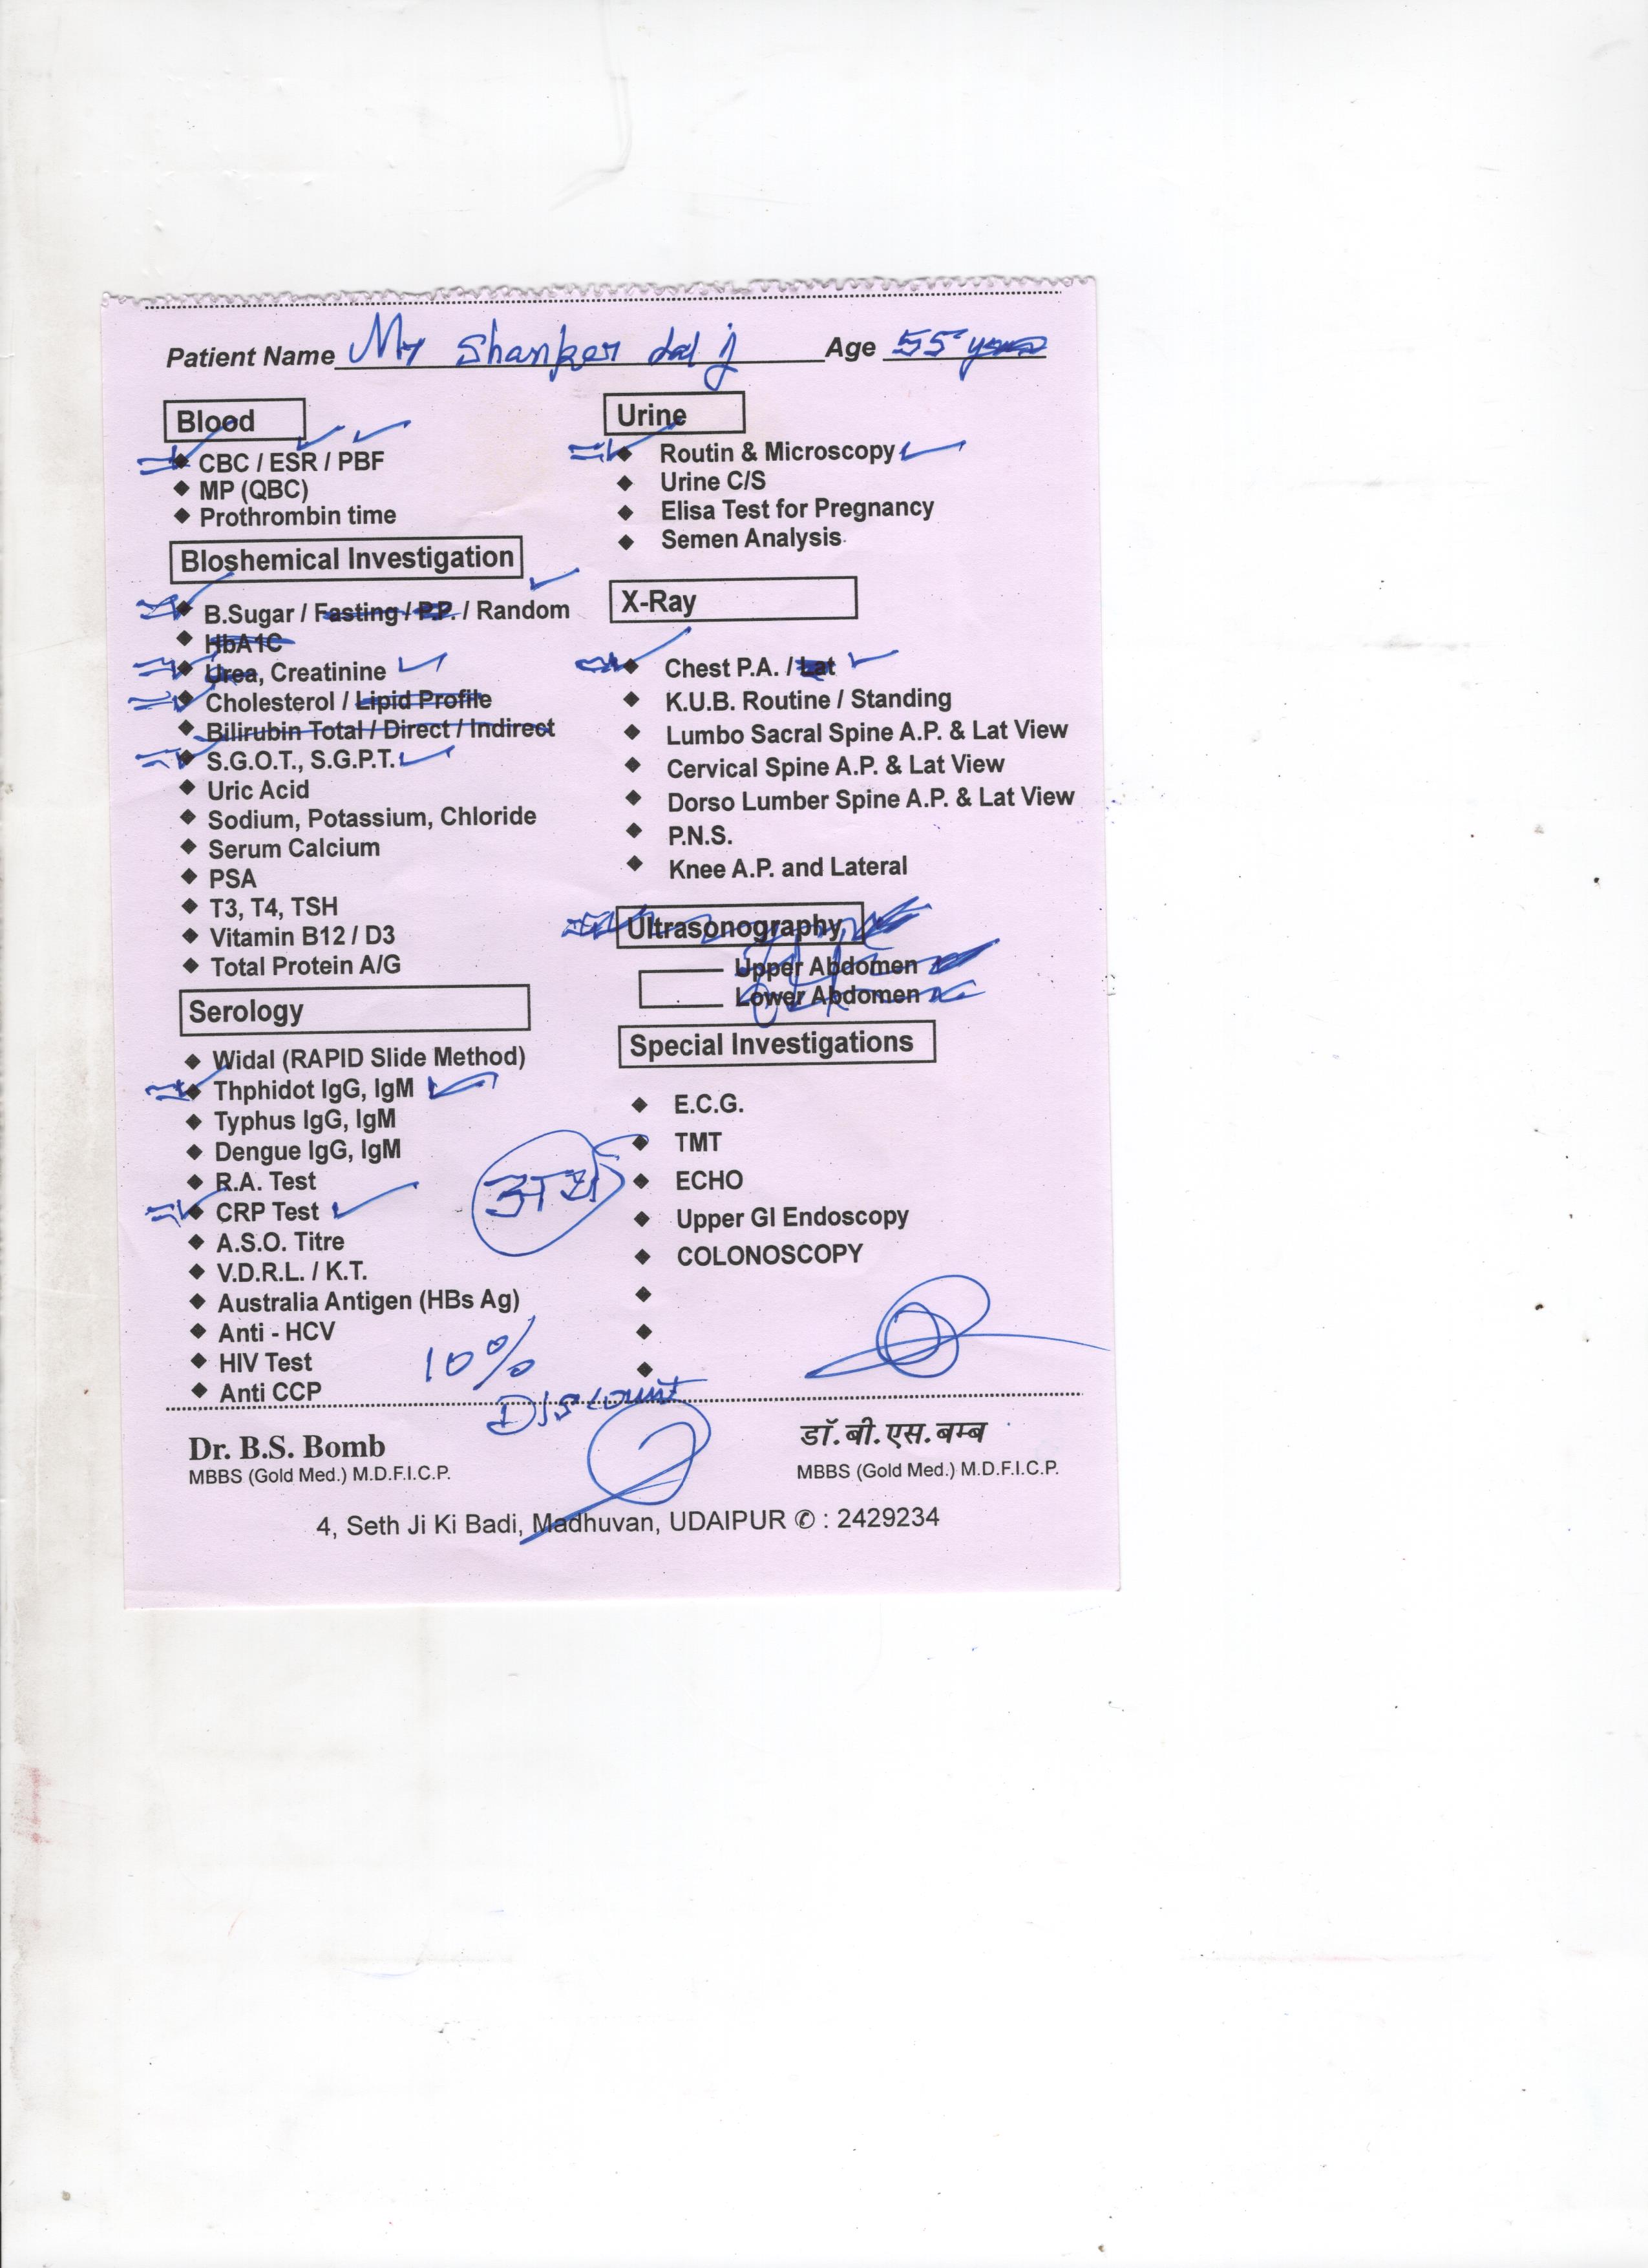 Patient Name Mr Shanker Lal ji Age 55 years
Blood
CBC / ESR / PBF
MP (QBC)
Prothrombin time
Bloshemical Investigation
B.Sugar / Fasting / P.P. / Random
HbA1C
Urea, Creatinine
Cholesterol / Lipid Profile
Bilirubin Total / Direct / Indirect
S.G.O.T., S.G.P.T.
Uric Acid
Sodium, Potassium, Chloride
Serum Calcium
PSA
T3, T4, TSH
Vitamin B12 / D3
Total Protein A/G
Serology
Widal (RAPID Slide Method)
Thphidot IgG, IgM
Typhus IgG, IgM
Dengue IgG, IgM
R.A. Test
CRP Test
A.S.O. Titre
V.D.R.L. / K.T.
Australia Antigen (HBs Ag)
Anti - HCV
HIV Test
Anti CCP
Urine
Routin & Microscopy
Urine C/S
Elisa Test for Pregnancy
Semen Analysis
X-Ray
Chest P.A. / Lat
K.U.B. Routine / Standing
Lumbo Sacral Spine A.P. & Lat View
Cervical Spine A.P. & Lat View
Dorso Lumber Spine A.P. & Lat View
P.N.S.
Knee A.P. and Lateral
Ultrasonography
Upper Abdomen
Lower Abdomen
Special Investigations
E.C.G.
TMT
ECHO
Upper GI Endoscopy
COLONOSCOPY
10%
Discount
Dr. B.S. Bomb
MBBS (Gold Med.) M.D.F.I.C.P.
डॉ. बी. एस. बम्ब
MBBS (Gold Med.) M.D.F.I.C.P.
4, Seth Ji Ki Badi, Madhuvan, UDAIPUR ✆ : 2429234